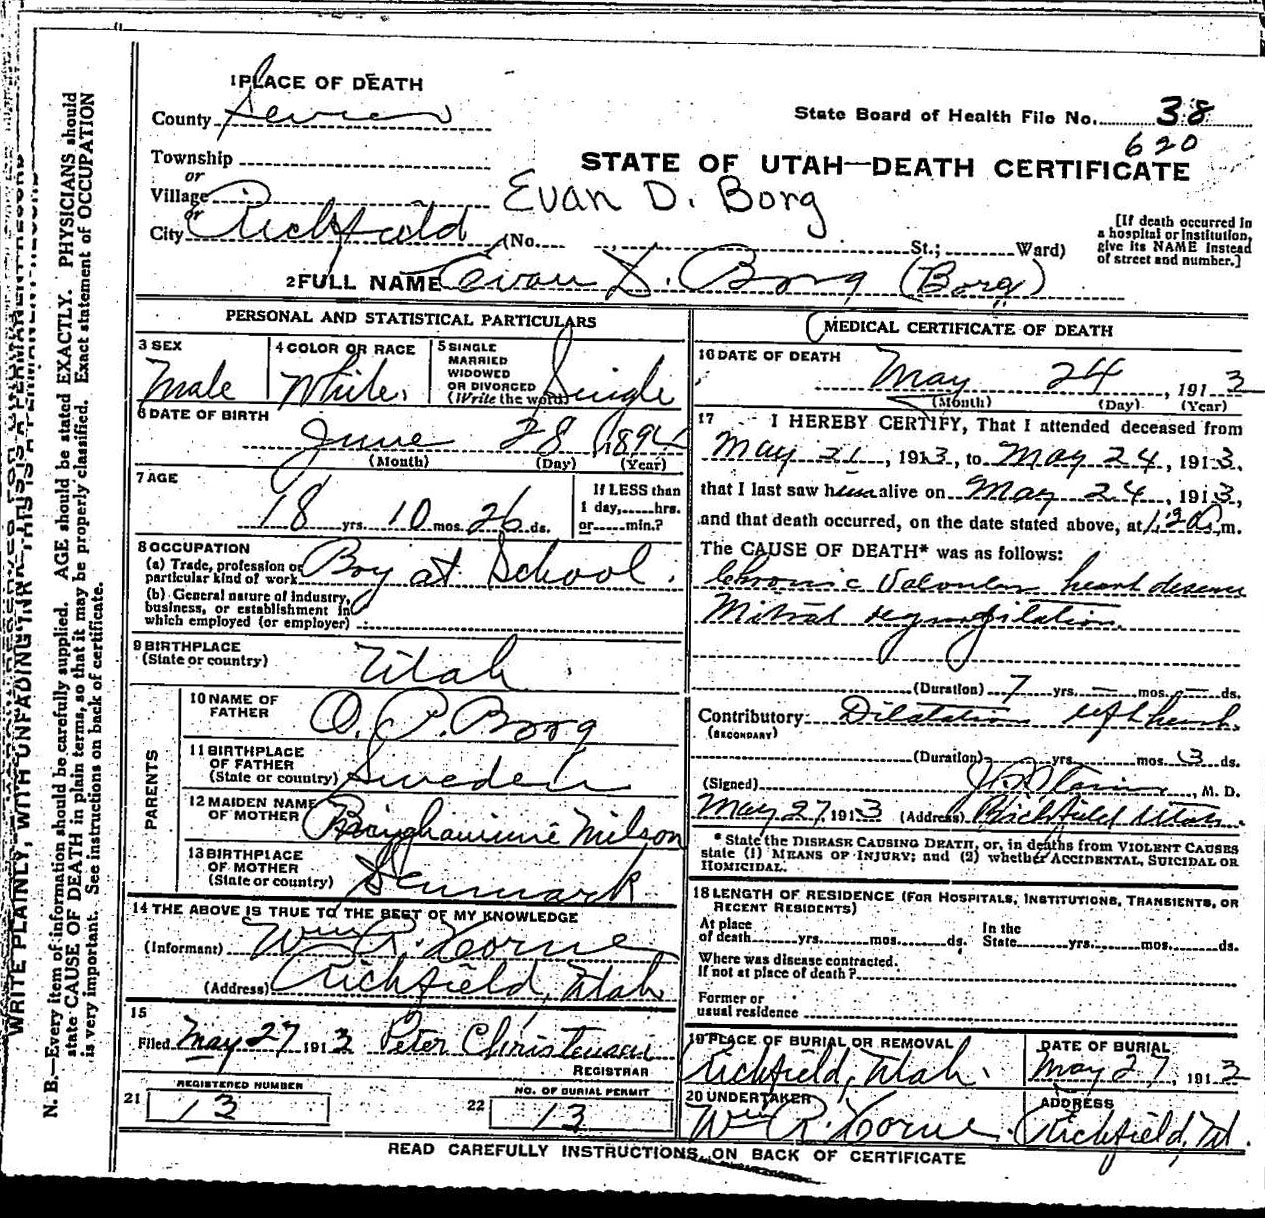 1 PLACE OF DEATH
County Sevier
State Board of Health File No. 38
620
Township
or
Village
or
City Richfield
STATE OF UTAH—DEATH CERTIFICATE
Evan D. Borg
(No. St.; Ward)
[If death occurred in
a hospital or institution,
give its NAME instead
of street and number.]
2 FULL NAME Evan D. Borg (Borg)
PERSONAL AND STATISTICAL PARTICULARS
3 SEX
Male
4 COLOR OR RACE
White.
5 SINGLE
MARRIED
WIDOWED
OR DIVORCED
(Write the word)
Single
6 DATE OF BIRTH
June 28 1894
(Month) (Day) (Year)
7 AGE
18 yrs. 10 mos. 26 ds.
If LESS than
1 day, hrs.
or min.?
8 OCCUPATION
(a) Trade, profession or
particular kind of work Boy at School.
(b) General nature of industry,
business, or establishment in
which employed (or employer)
9 BIRTHPLACE
(State or country)
Utah
PARENTS
10 NAME OF
FATHER
O. P. Borg
11 BIRTHPLACE
OF FATHER
(State or country) Sweden
12 MAIDEN NAME
OF MOTHER
Nilson
13 BIRTHPLACE
OF MOTHER
(State or country) Denmark
14 THE ABOVE IS TRUE TO THE BEST OF MY KNOWLEDGE
(Informant) Wm R. Horne
(Address) Richfield, Utah
15
Filed May 27 1913 Peter Christensen
REGISTRAR
REGISTERED NUMBER
21 13
NO. OF BURIAL PERMIT
22 13
MEDICAL CERTIFICATE OF DEATH
16 DATE OF DEATH
May 24, 1913
(Month) (Day) (Year)
17 I HEREBY CERTIFY, That I attended deceased from
May 21, 1913, to May 24, 1913,
that I last saw him alive on May 24, 1913,
and that death occurred, on the date stated above, at m.
The CAUSE OF DEATH* was as follows:
Chronic Valvular heart disease
Mitral regurgitation.
(Duration) 7 yrs. — mos. — ds.
Contributory Dilatation left heart.
(SECONDARY)
(Duration) yrs. mos. 3 ds.
(Signed) , M. D.
May 27, 1913 (Address) Richfield Utah.
* State the DISEASE CAUSING DEATH, or, in deaths from VIOLENT CAUSES
state (1) MEANS OF INJURY; and (2) whether ACCIDENTAL, SUICIDAL OR
HOMICIDAL.
18 LENGTH OF RESIDENCE (FOR HOSPITALS, INSTITUTIONS, TRANSIENTS, OR
RECENT RESIDENTS)
At place
of death yrs. mos. ds.
In the
State yrs. mos. ds.
Where was disease contracted.
If not at place of death?
Former or
usual residence
19 PLACE OF BURIAL OR REMOVAL
Richfield, Utah.
DATE OF BURIAL
May 27, 1913
20 UNDERTAKER
Wm R. Horne.
ADDRESS
Richfield, Ut.
READ CAREFULLY INSTRUCTIONS ON BACK OF CERTIFICATE
WRITE PLAINLY, WITH UNFADING INK—THIS IS A PERMANENT RECORD
N. B.—Every item of information should be carefully supplied. AGE should be stated EXACTLY. PHYSICIANS should
state CAUSE OF DEATH in plain terms, so that it may be properly classified. Exact statement of OCCUPATION
is very important. See instructions on back of certificate.